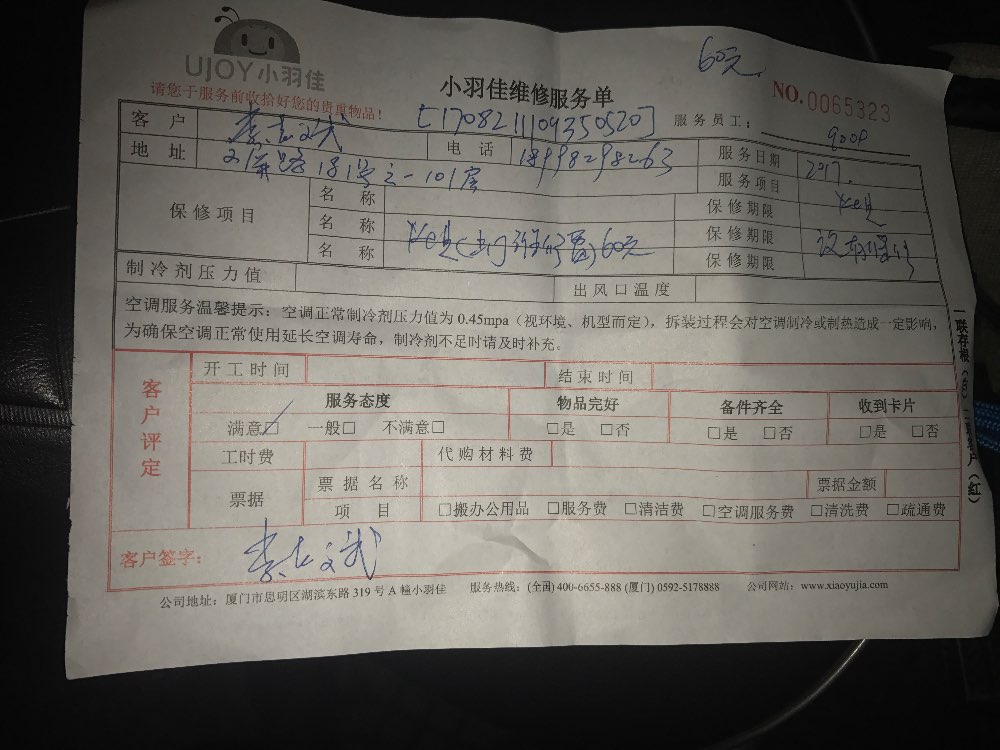 UJOY小羽佳
60元
请您于服务前收拾好您的贵重物品!
小羽佳维修服务单
NO.0065323
[170821109350520]
服务员工:
客 户
电 话 18998298263
服务日期 2017.
地 址 181号之一101房
服务项目
保修项目
名 称 保修期限
名 称 60元 保修期限
名 称 保修期限
制冷剂压力值 出风口温度
空调服务温馨提示:空调正常制冷剂压力值为 0.45mpa(视环境、机型而定),拆装过程会对空调制冷或制热造成一定影响,
为确保空调正常使用延长空调寿命,制冷剂不足时请及时补充。
客户评定
开工时间 结束时间
服务态度 物品完好 备件齐全 收到卡片
满意☑ 一般□ 不满意□ □是 □否 □是 □否 □是 □否
工时费 代购材料费
票据 票据名称 票据金额
项 目 □搬办公用品 □服务费 □清洁费 □空调服务费 □清洗费 □疏通费
客户签字:
公司地址:厦门市思明区湖滨东路 319 号 A 幢小羽佳 服务热线:(全国) 400-6655-888 (厦门) 0592-5178888 公司网站:www.xiaoyujia.com